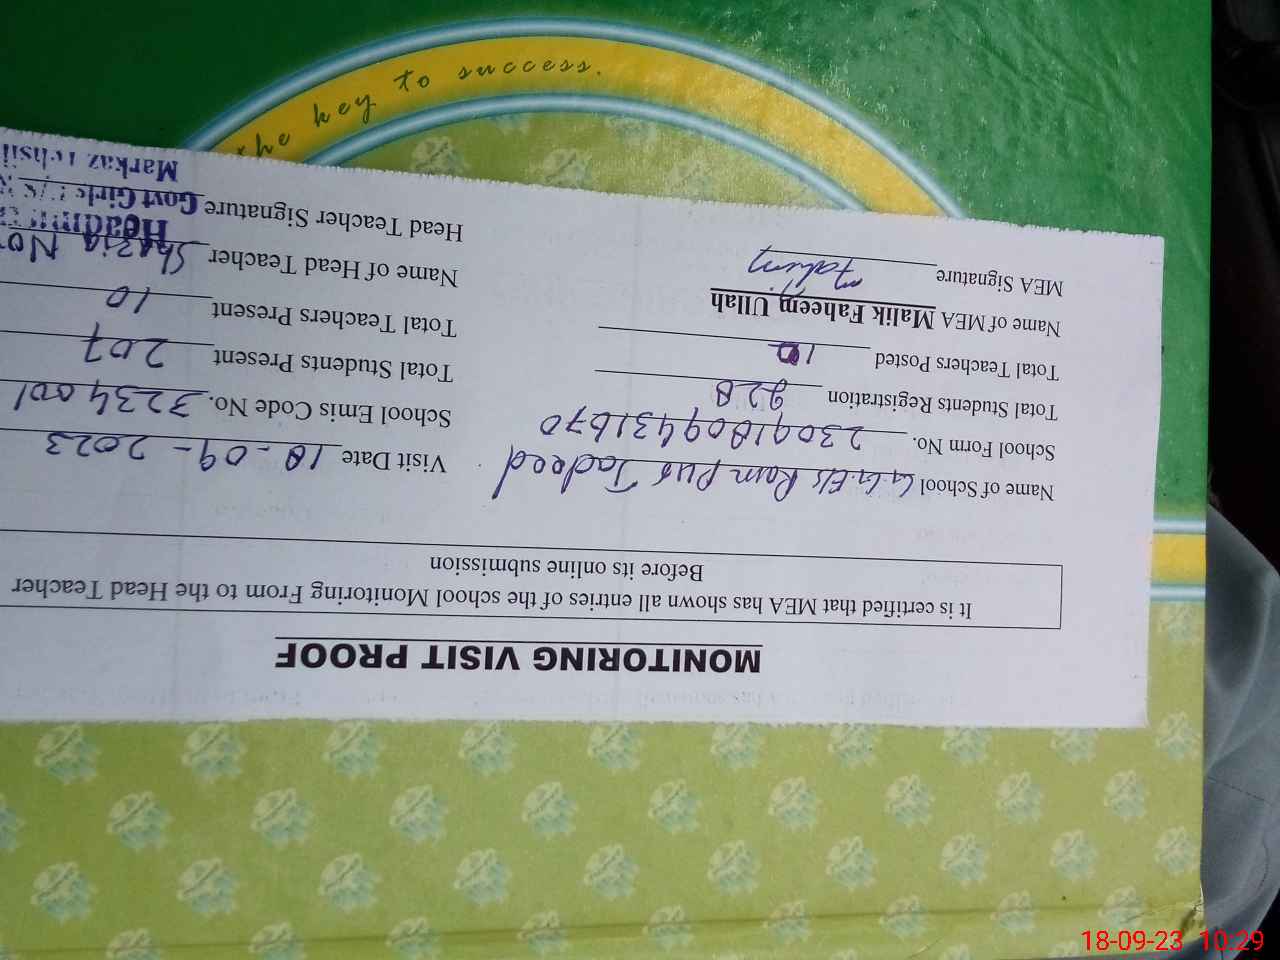 the key to success.
MONITORING VISIT PROOF
It is certified that MEA has shown all entries of the school Monitoring From to the Head Teacher
Before its online submission
Name of School G.G.E/S Ram Pur Jadeed Visit Date 18-09-2023
School Form No. School Emis Code No.
Total Students Registration 228 Total Students Present 207
Total Teachers Posted 10 Total Teachers Present 10
Name of MEA Malik Faheem Ullah Name of Head Teacher Shazia
MEA Signature Fahim Head Teacher Signature
Govt Girls
Markaz
18-09-23 10:29